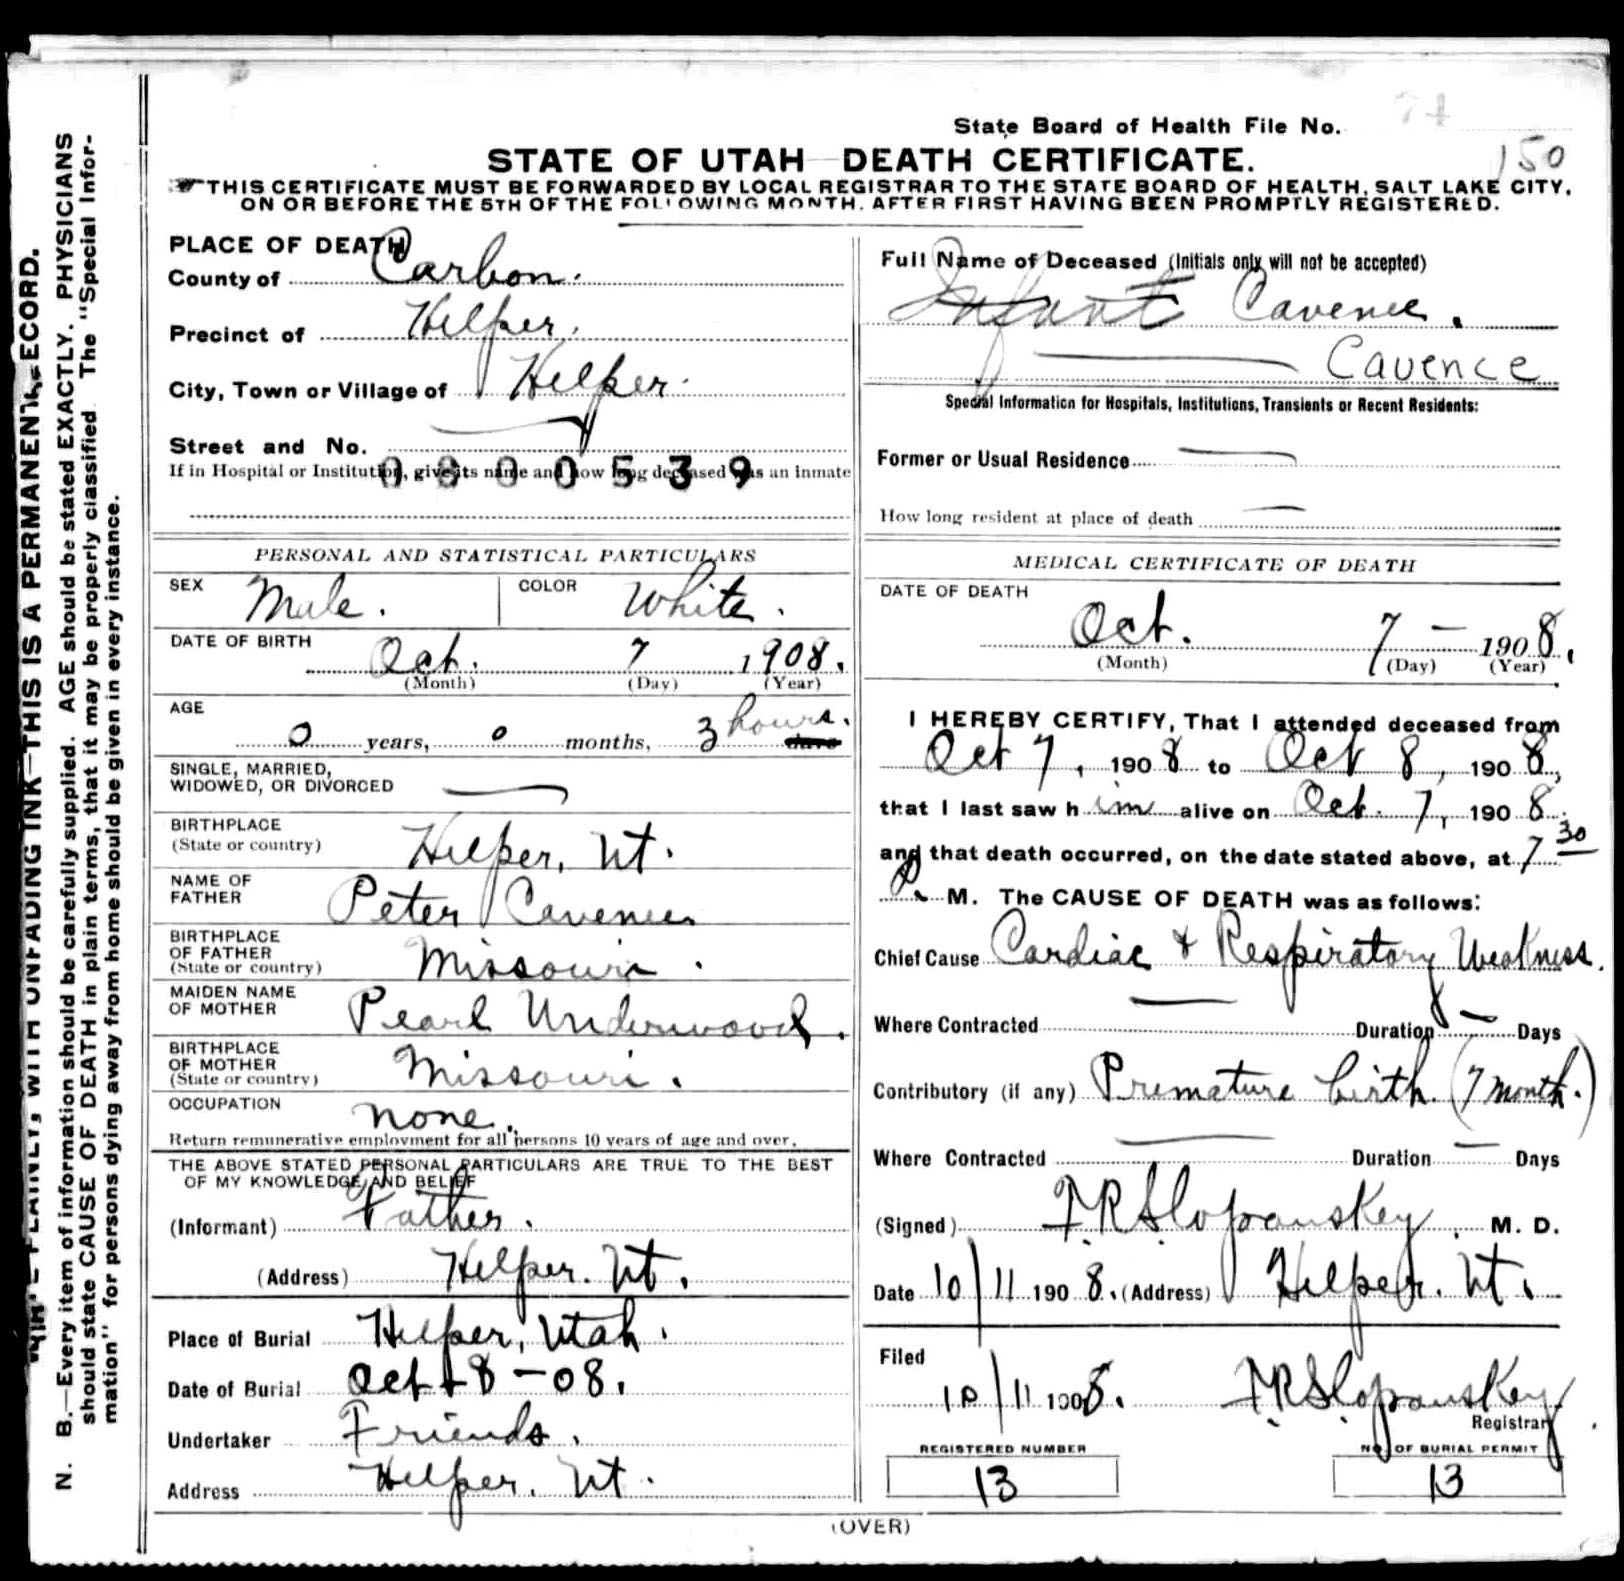 State Board of Health File No.
150
STATE OF UTAH—DEATH CERTIFICATE.
THIS CERTIFICATE MUST BE FORWARDED BY LOCAL REGISTRAR TO THE STATE BOARD OF HEALTH, SALT LAKE CITY,
ON OR BEFORE THE 5TH OF THE FOLLOWING MONTH, AFTER FIRST HAVING BEEN PROMPTLY REGISTERED.
N. B.—Every item of information should be carefully supplied. AGE should be stated EXACTLY. PHYSICIANS
should state CAUSE OF DEATH in plain terms, that it may be properly classified. The "Special Infor-
mation" for persons dying away from home should be given in every instance.
PLAINLY, WITH UNFADING INK—THIS IS A PERMANENT RECORD.
PLACE OF DEATH
County of Carbon.
Precinct of Helper.
City, Town or Village of Helper.
Street and No.
If in Hospital or Institution, give its name and how long deceased was an inmate
0800539
PERSONAL AND STATISTICAL PARTICULARS
SEX Male. COLOR White.
DATE OF BIRTH Oct. 7 1908.
(Month) (Day) (Year)
AGE
0 years, 0 months, 3 hours. days
SINGLE, MARRIED,
WIDOWED, OR DIVORCED
BIRTHPLACE
(State or country) Helper, Ut.
NAME OF
FATHER Peter Cavenee
BIRTHPLACE
OF FATHER
(State or country) Missouri.
MAIDEN NAME
OF MOTHER Pearl Underwood.
BIRTHPLACE
OF MOTHER
(State or country) Missouri.
OCCUPATION None.
Return remunerative employment for all persons 10 years of age and over.
THE ABOVE STATED PERSONAL PARTICULARS ARE TRUE TO THE BEST
OF MY KNOWLEDGE AND BELIEF
(Informant) Father.
(Address) Helper. Ut.
Place of Burial Helper, Utah.
Date of Burial Oct 8-08.
Undertaker Friends.
Address Helper. Ut.
Full Name of Deceased (Initials only will not be accepted)
Infant Cavenee.
Cavence
Special Information for Hospitals, Institutions, Transients or Recent Residents:
Former or Usual Residence
How long resident at place of death
MEDICAL CERTIFICATE OF DEATH
DATE OF DEATH
Oct. 7 — 1908.
(Month) (Day) (Year)
I HEREBY CERTIFY, That I attended deceased from
Oct 7, 1908 to Oct 8, 1908,
that I last saw him alive on Oct. 7, 1908
and that death occurred, on the date stated above, at 7 30
P. M. The CAUSE OF DEATH was as follows:
Chief Cause Cardiac & Respiratory Weakness.
Where Contracted Duration Days
Contributory (if any) Premature birth. (7 month.)
Where Contracted Duration Days
(Signed) F.R. Slopanskey, M. D.
Date 10/11 1908. (Address) Helper. Ut.
Filed
10/11 1908. F.R. Slopanskey
Registrar
REGISTERED NUMBER
13
NO. OF BURIAL PERMIT
13
(OVER)